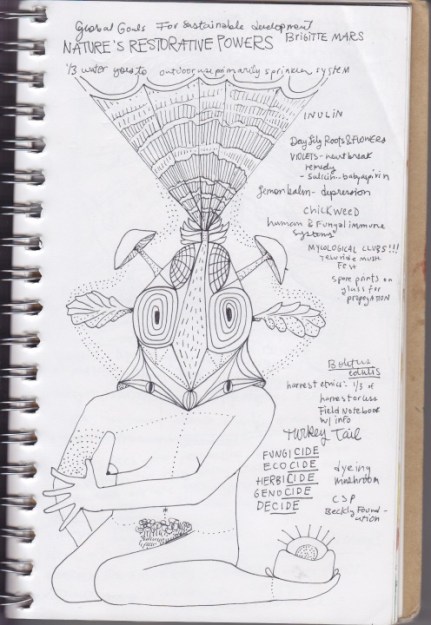 Global Goals For sustainable development
NATURE'S RESTORATIVE POWERS BRIGITTE MARS
1/3 water goes to outdoor use primarily sprinkler system
INULIN
Day lily Roots & FLOWERS
VIOLETS - heartbreak
remedy
- salicin - baby aspirin
lemon balm - depression
CHICKWEED
human & Fungal immune
systems
MYCOLOGICAL CLUBS!!!
Telluride mush
Fest
spore prints on
glass for
propagation
Boletus
edulis
harvest ethics: 1/3 of
harvest or less
Field Notebook
w/ info
Turkey Tail
FUNGICIDE
ECOCIDE
HERBICIDE
GENOCIDE
DECIDE
dyeing
mushroom
CSP
Beckly Found-
ation